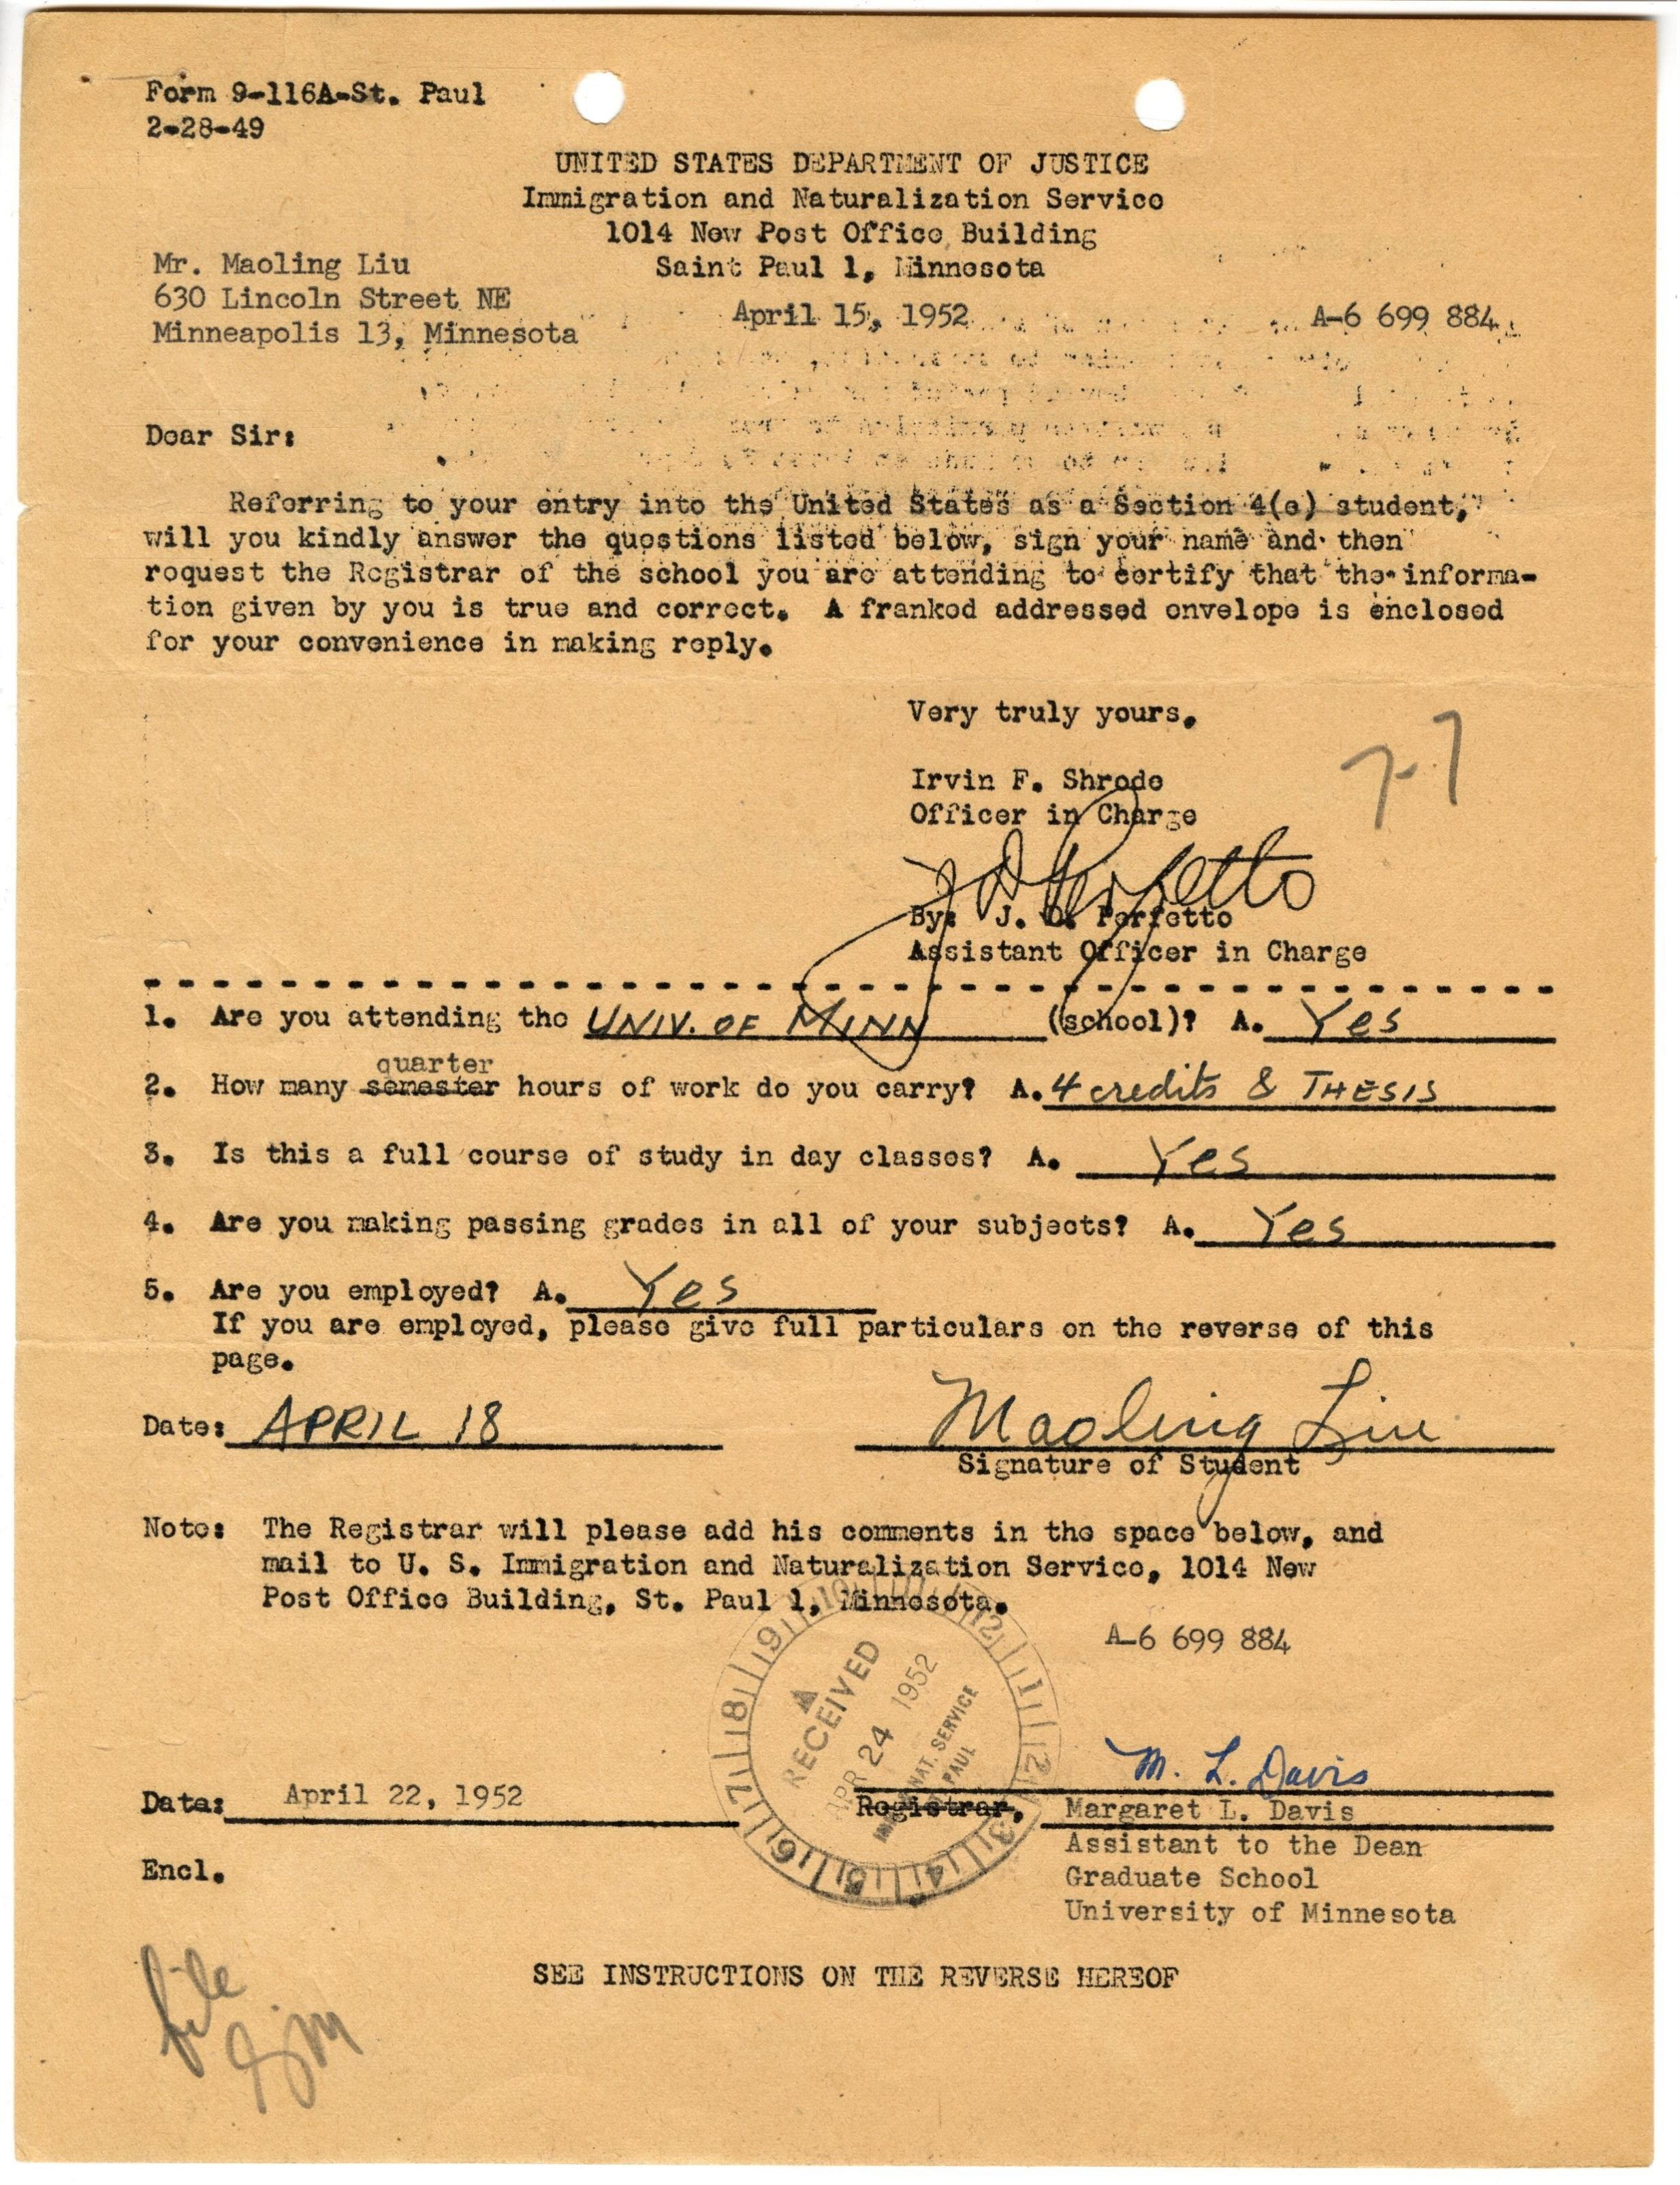 Form 9-116A-St. Paul
2-28-49
UNITED STATES DEPARTMENT OF JUSTICE
Immigration and Naturalization Service
1014 New Post Office Building
Saint Paul 1, Minnesota
Mr. Maoling Liu
630 Lincoln Street NE
Minneapolis 13, Minnesota
April 15, 1952
A-6 699 884
Dear Sir:
Referring to your entry into the United States as a Section 4(e) student,
will you kindly answer the questions listed below, sign your name and then
request the Registrar of the school you are attending to certify that the informa-
tion given by you is true and correct. A franked addressed envelope is enclosed
for your convenience in making reply.
Very truly yours.
7-7
Irvin F. Shrode
Officer in Charge
J D Perfetto
By: J. D. Perfetto
Assistant Officer in Charge
1. Are you attending the UNIV. OF MINN (school)? A. Yes
quarter
2. How many semester hours of work do you carry? A. 4 credits & THESIS
3. Is this a full course of study in day classes? A. Yes
4. Are you making passing grades in all of your subjects? A. Yes
5. Are you employed? A. Yes
If you are employed, please give full particulars on the reverse of this
page.
Date: APRIL 18 Maoling Liu
Signature of Student
Note: The Registrar will please add his comments in the space below, and
mail to U. S. Immigration and Naturalization Service, 1014 New
Post Office Building, St. Paul 1, Minnesota.
A-6 699 884
RECEIVED
APR 24 1952
NAT. SERVICE
PAUL
M. L. Davis
Date: April 22, 1952
Registrar, Margaret L. Davis
Assistant to the Dean
Graduate School
University of Minnesota
Encl.
SEE INSTRUCTIONS ON THE REVERSE HEREOF
file